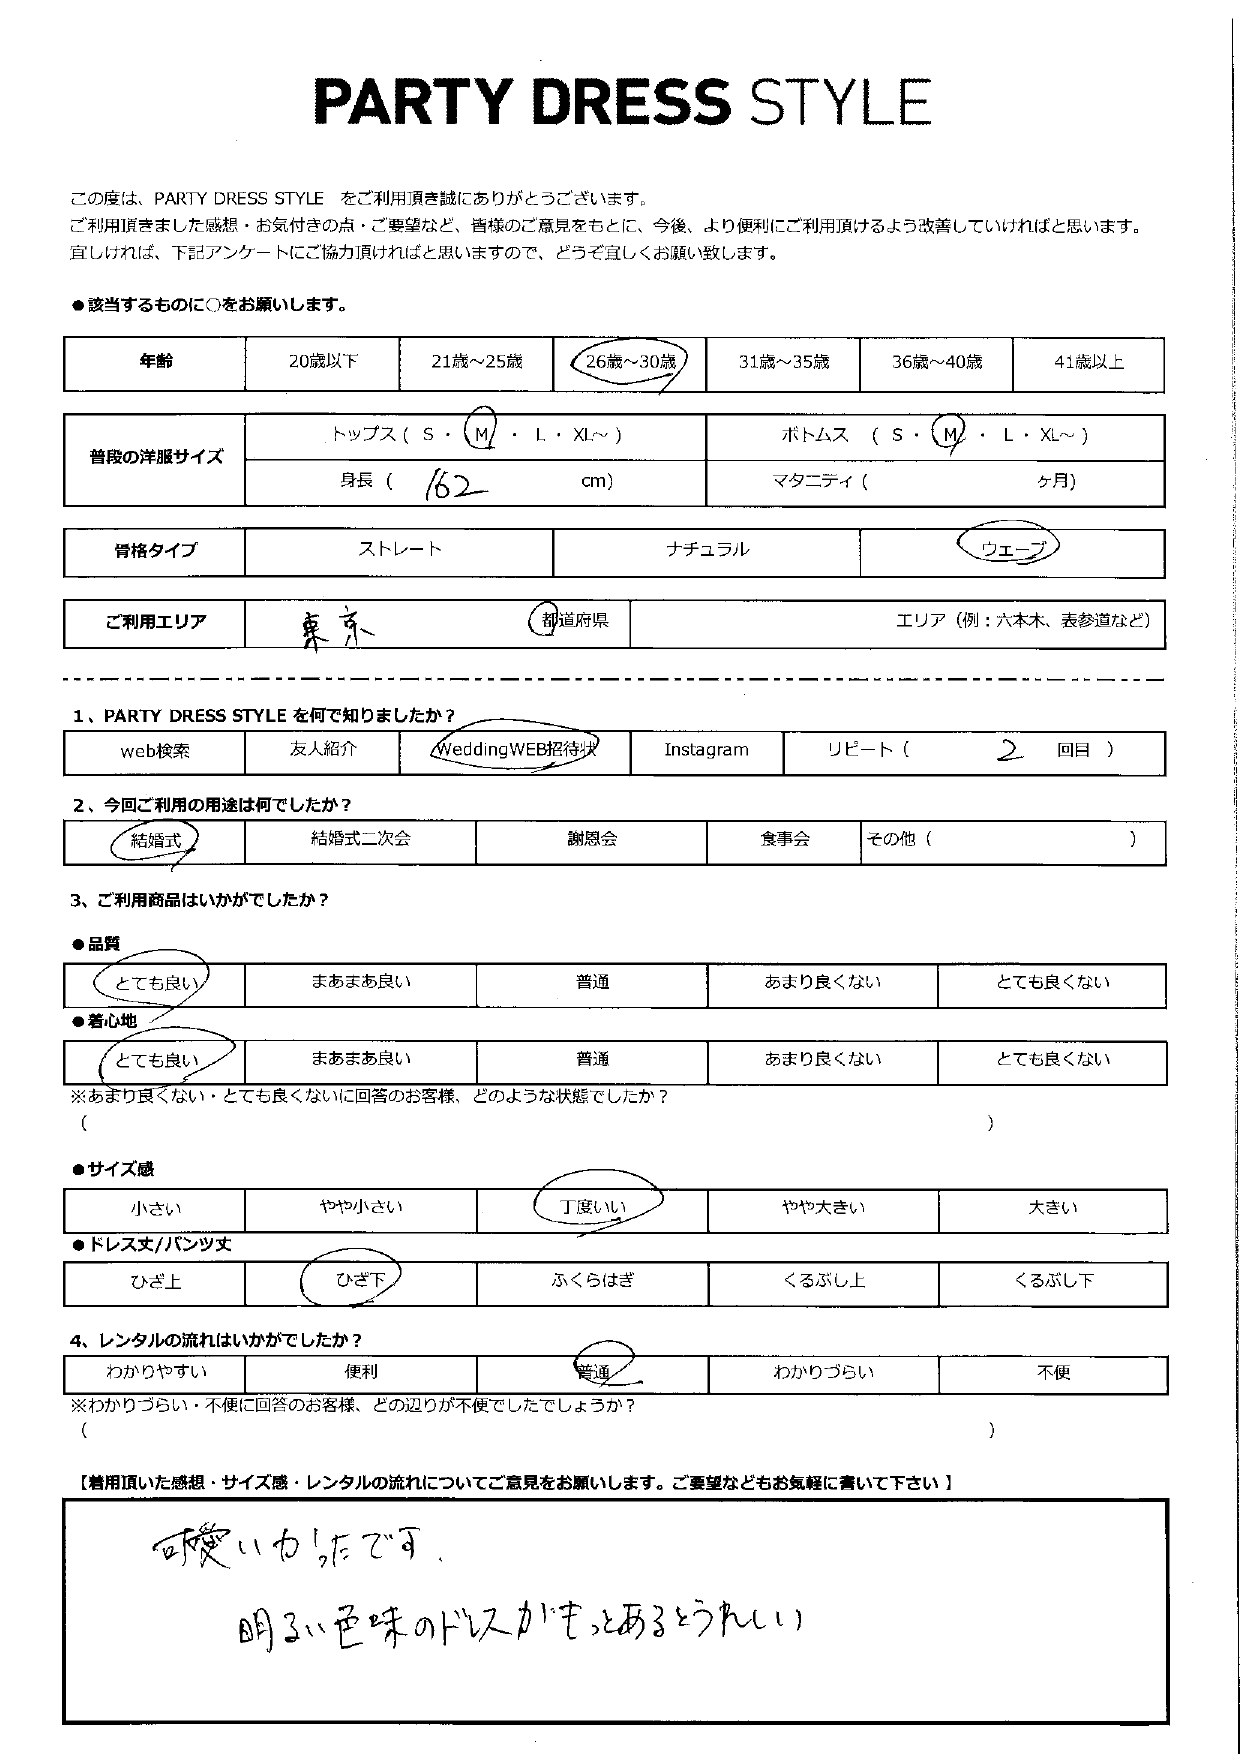 PARTY DRESS STYLE
この度は、PARTY DRESS STYLE をご利用頂き誠にありがとうございます。
ご利用頂きました感想・お気付きの点・ご要望など、皆様のご意見をもとに、今後、より便利にご利用頂けるよう改善していければと思います。
宜しければ、下記アンケートにご協力頂ければと思いますので、どうぞ宜しくお願い致します。
●該当するものに○をお願いします。
年齢 20歳以下 21歳～25歳 26歳～30歳 31歳～35歳 36歳～40歳 41歳以上
普段の洋服サイズ
トップス ( S ・ M ・ L ・ XL～ ) ボトムス ( S ・ M ・ L ・ XL～ )
身長 ( 162 cm) マタニティ ( ヶ月)
骨格タイプ ストレート ナチュラル ウェーブ
ご利用エリア 東京 都道府県 エリア（例：六本木、表参道など）
1、PARTY DRESS STYLE を何で知りましたか？
web検索 友人紹介 WeddingWEB招待状 Instagram リピート ( 2 回目 )
2、今回ご利用の用途は何でしたか？
結婚式 結婚式二次会 謝恩会 食事会 その他 ( )
3、ご利用商品はいかがでしたか？
●品質
とても良い まあまあ良い 普通 あまり良くない とても良くない
●着心地
とても良い まあまあ良い 普通 あまり良くない とても良くない
※あまり良くない・とても良くないに回答のお客様、どのような状態でしたか？
( )
●サイズ感
小さい やや小さい 丁度いい やや大きい 大きい
●ドレス丈/パンツ丈
ひざ上 ひざ下 ふくらはぎ くるぶし上 くるぶし下
4、レンタルの流れはいかがでしたか？
わかりやすい 便利 普通 わかりづらい 不便
※わかりづらい・不便に回答のお客様、どの辺りが不便でしたでしょうか？
( )
【着用頂いた感想・サイズ感・レンタルの流れについてご意見をお願いします。ご要望などもお気軽に書いて下さい 】
可愛いかったです.
明るい色味のドレスがもっとあるとうれしい